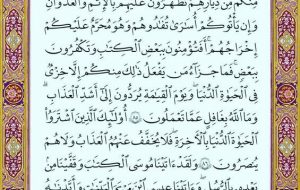 مِّنكُم مِّن دِيَٰرِهِمْ تَظَٰهَرُونَ عَلَيْهِم بِٱلْإِثْمِ وَٱلْعُدْوَٰنِ
وَإِن يَأْتُوكُمْ أُسَٰرَىٰ تُفَٰدُوهُمْ وَهُوَ مُحَرَّمٌ عَلَيْكُمْ
إِخْرَاجُهُمْ أَفَتُؤْمِنُونَ بِبَعْضِ ٱلْكِتَٰبِ وَتَكْفُرُونَ
بِبَعْضٍ فَمَا جَزَآءُ مَن يَفْعَلُ ذَٰلِكَ مِنكُمْ إِلَّا خِزْىٌ
فِى ٱلْحَيَوٰةِ ٱلدُّنْيَا وَيَوْمَ ٱلْقِيَٰمَةِ يُرَدُّونَ إِلَىٰٓ أَشَدِّ ٱلْعَذَابِ
وَمَا ٱللَّهُ بِغَٰفِلٍ عَمَّا تَعْمَلُونَ ٨٥ أُو۟لَٰٓئِكَ ٱلَّذِينَ ٱشْتَرَوُا۟
ٱلْحَيَوٰةَ ٱلدُّنْيَا بِٱلْءَاخِرَةِ فَلَا يُخَفَّفُ عَنْهُمُ ٱلْعَذَابُ وَلَا هُمْ
يُنصَرُونَ ٨٦ وَلَقَدْ ءَاتَيْنَا مُوسَى ٱلْكِتَٰبَ وَقَفَّيْنَا مِنۢ
بَعْدِهِۦ بِٱلرُّسُلِ وَءَاتَيْنَا عِيسَى ٱبْنَ مَرْيَمَ ٱلْبَيِّنَٰتِ وَأَيَّدْنَٰهُ